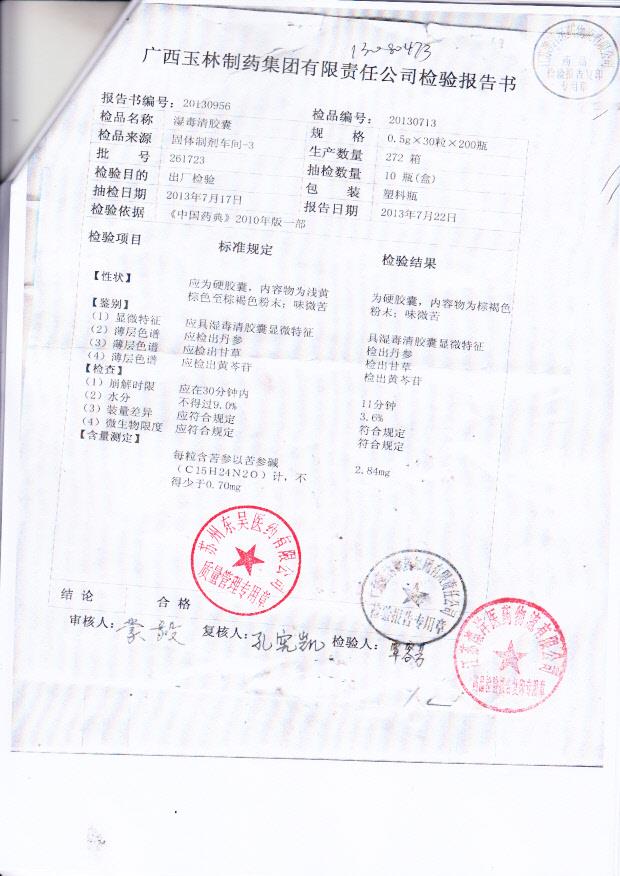 13080473
广西玉林制药集团有限责任公司检验报告书
报告书编号：20130956 检品编号：20130713
检品名称 湿毒清胶囊 规 格 0.5g×30粒×200瓶
检品来源 固体制剂车间-3 生产数量 272 箱
批 号 261723 抽检数量 10 瓶(盒)
检验目的 出厂检验 包 装 塑料瓶
抽检日期 2013年7月17日 报告日期 2013年7月22日
检验依据 《中国药典》2010年版一部
检验项目 标准规定 检验结果
【性状】 应为硬胶囊，内容物为浅黄 为硬胶囊，内容物为棕褐色
棕色至棕褐色粉末；味微苦 粉末；味微苦
【鉴别】
（1）显微特征 应具湿毒清胶囊显微特征 具湿毒清胶囊显微特征
（2）薄层色谱 应检出丹参 检出丹参
（3）薄层色谱 应检出甘草 检出甘草
（4）薄层色谱 应检出黄芩苷 检出黄芩苷
【检查】
（1）崩解时限 应在30分钟内 11分钟
（2）水分 不得过9.0% 3.6%
（3）装量差异 应符合规定 符合规定
（4）微生物限度 应符合规定 符合规定
【含量测定】
每粒含苦参以苦参碱
（C15H24N2O）计，不 2.84mg
得少于0.70mg
苏州东吴医药有限公司
质量管理专用章
检验报告专用章
结 论 合 格
审核人： 复核人：孔宪凯 检验人：